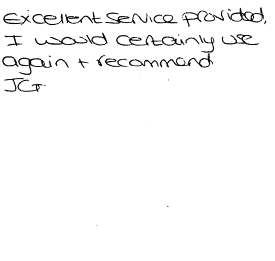 Excellent service provided,
I would certainly use
again + recommend
JG.